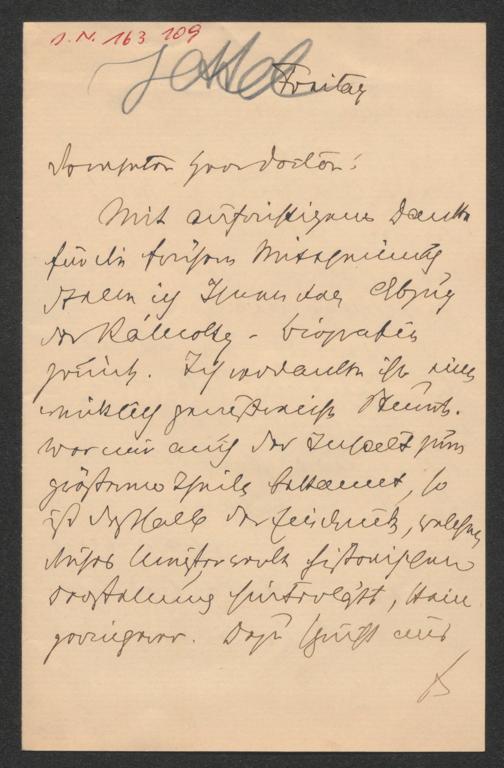 J. N. 163 109
Freitag
Verehrter Herr Doctor!
Mit aufrichtigem Danke
für die frühere Mittheilung
stelle ich Ihnen den Abzug
der Kálnoky-Biografie
zurück. Ich verdanke ihr eine
wirklich genußreiche Stunde.
War mir auch der Inhalt zum
größeren Theile bekannt, so
ist deshalb der Eindruck, welchen
dieses Musterwerk historischer
Darstellung hinterläßt, kein
geringerer. Dazu